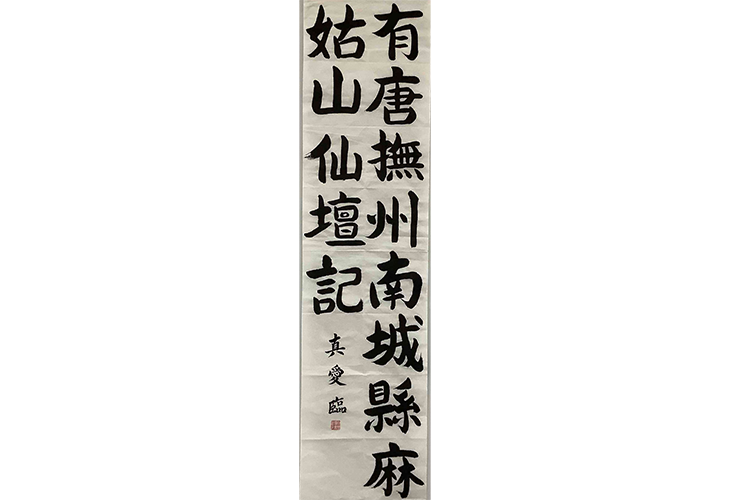 有唐撫州南城縣麻
姑山仙壇記
真愛臨